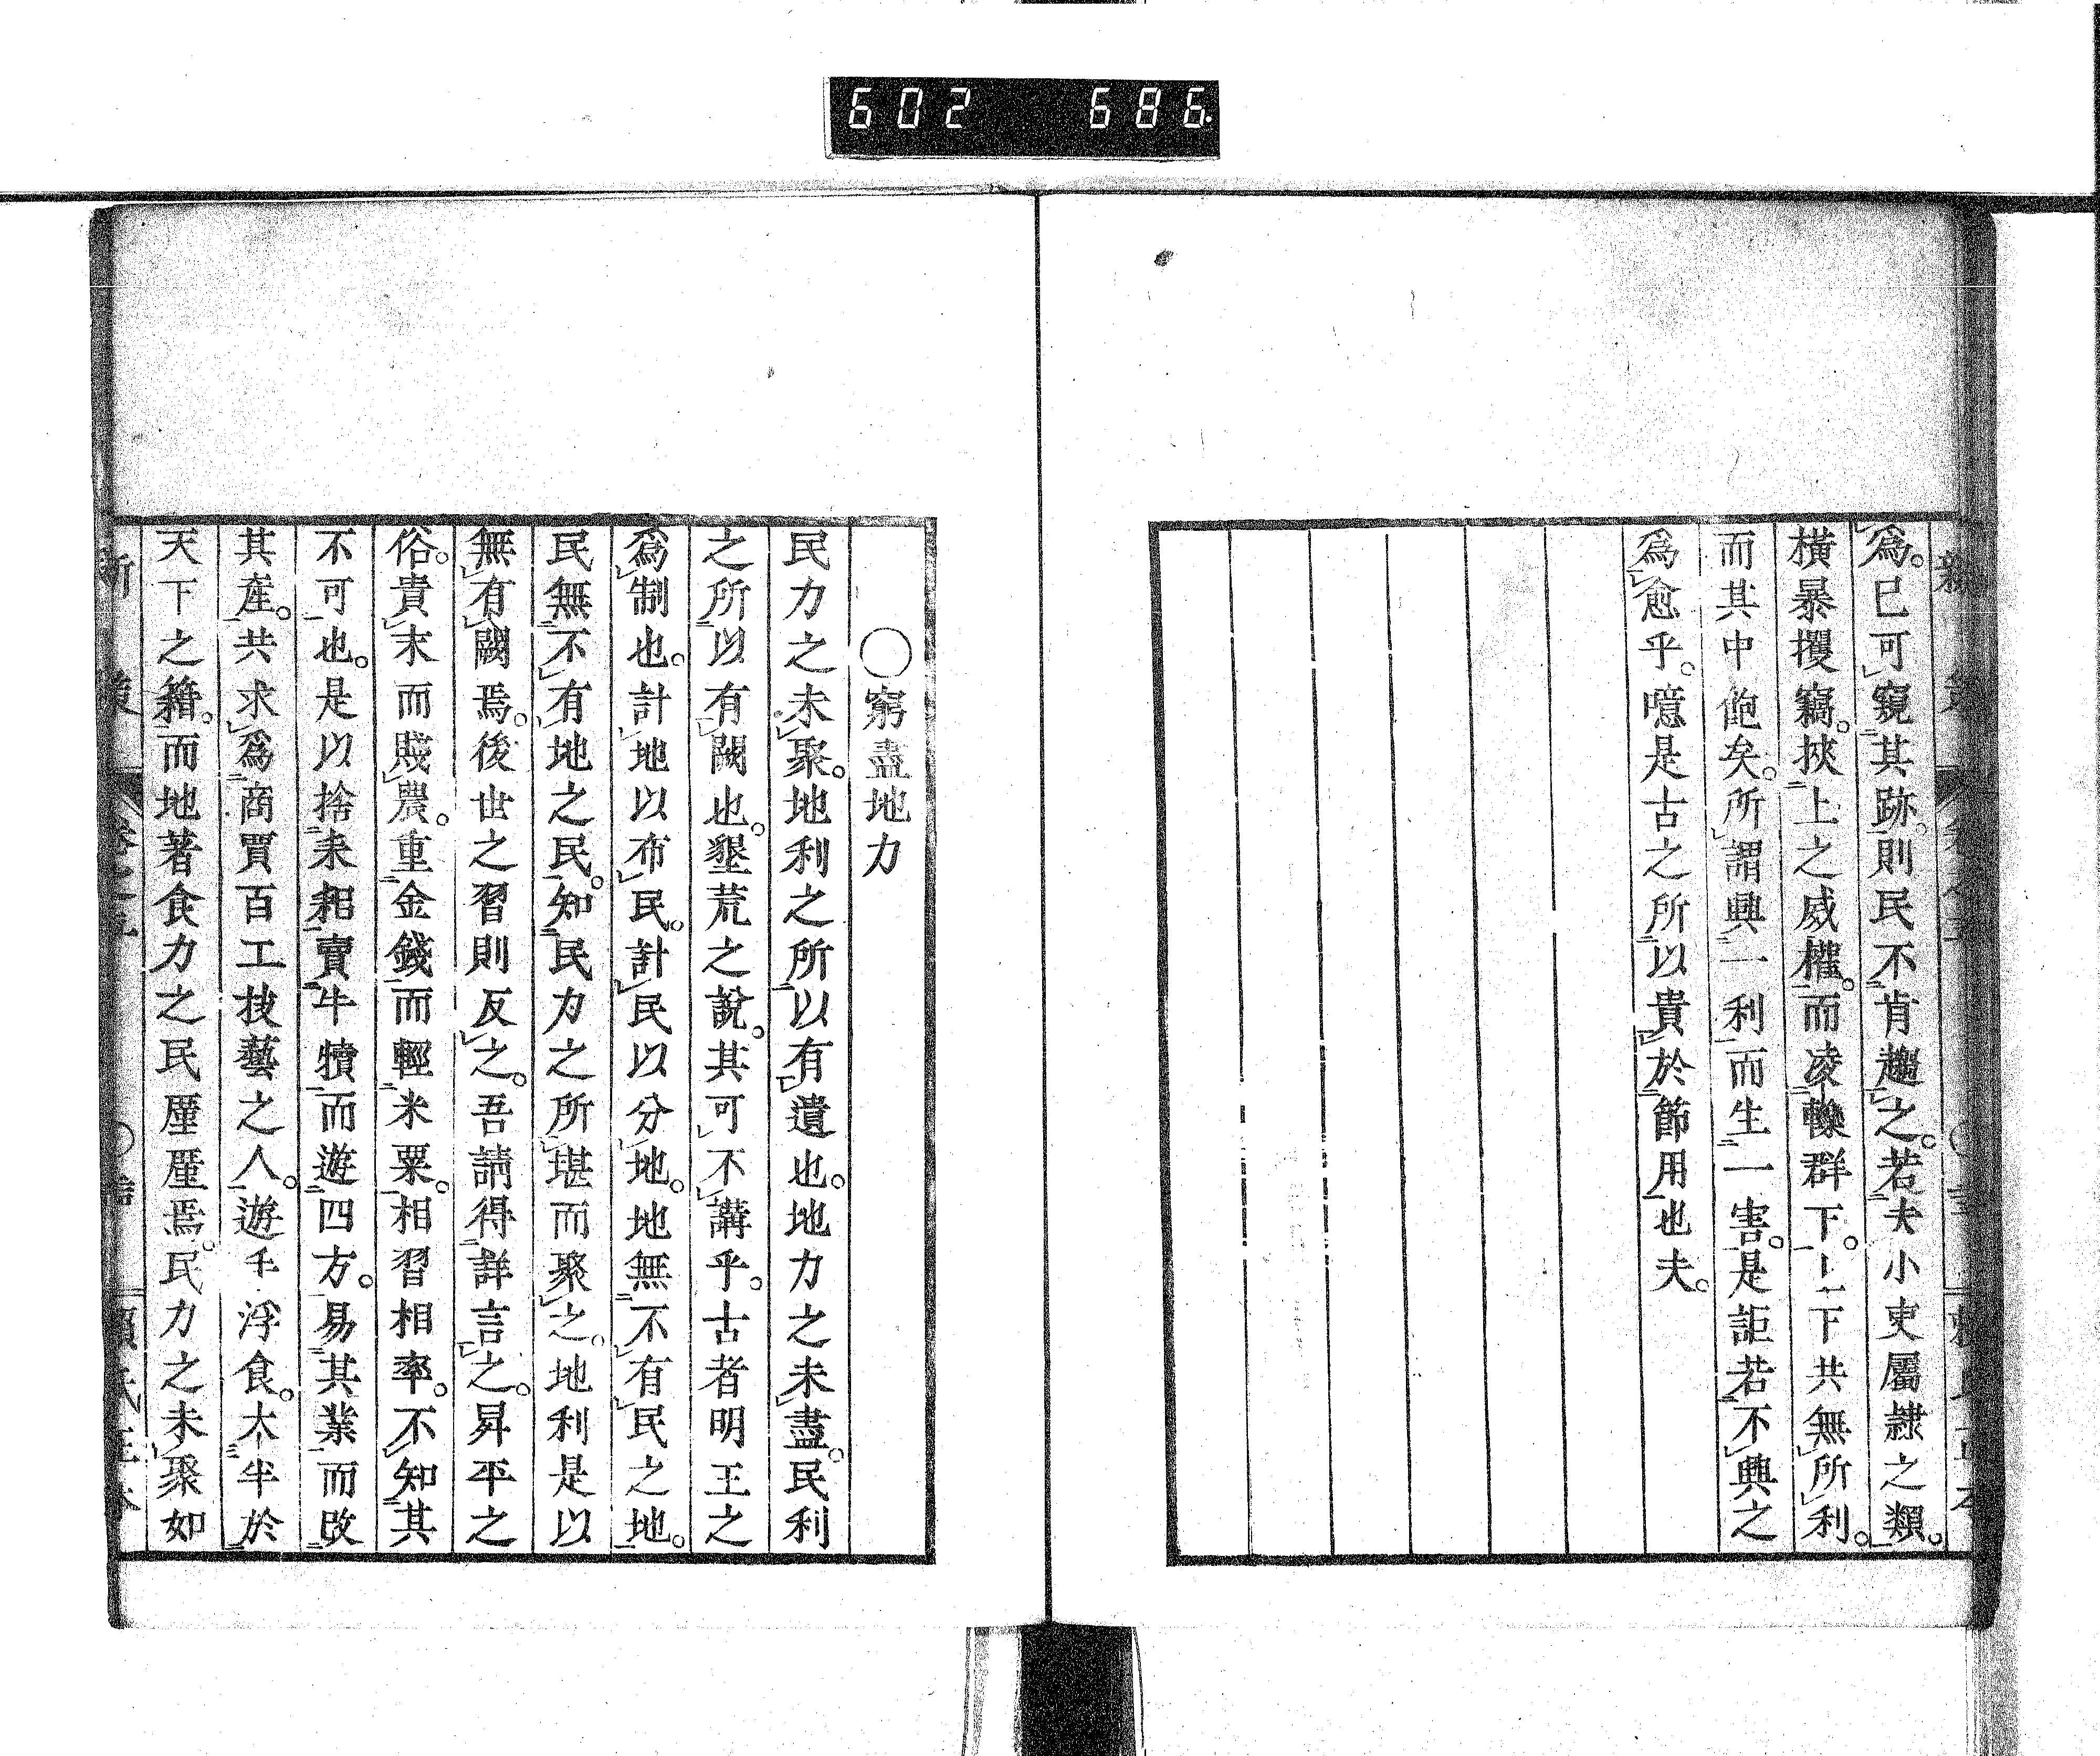 602 686.
爲。已可窺其跡。則民不肯趨之。若夫小吏屬隷之類。
橫暴攫竊。挾上之威權。而凌轢群下。上下共無所利。
而其中飽矣。所謂興一利而生一害。是詎若不興之
爲愈乎。噫是古之所以貴於節用也夫。
○窮盡地力
民力之未聚。地利之所以有遺也。地力之未盡。民利
之所以有闕也。墾荒之說。其可不講乎。古者明王之
爲制也。計地以布民。計民以分地。地無不有民之地。
民無不有地之民。知民力之所堪而聚之。地利是以
無有闕焉。後世之習則反之。吾請得詳言之。昇平之
俗。貴末而賤農。重金錢而輕米粟。相習相率。不知其
不可也。是以捨耒耜賣牛犢而遊四方。易其業而改
其產。共求爲商賈百工技藝之人。遊手浮食。太半於
天下之籍。而地著食力之民厪厪焉。民力之未聚如
新策 卷之五 頼氏正本